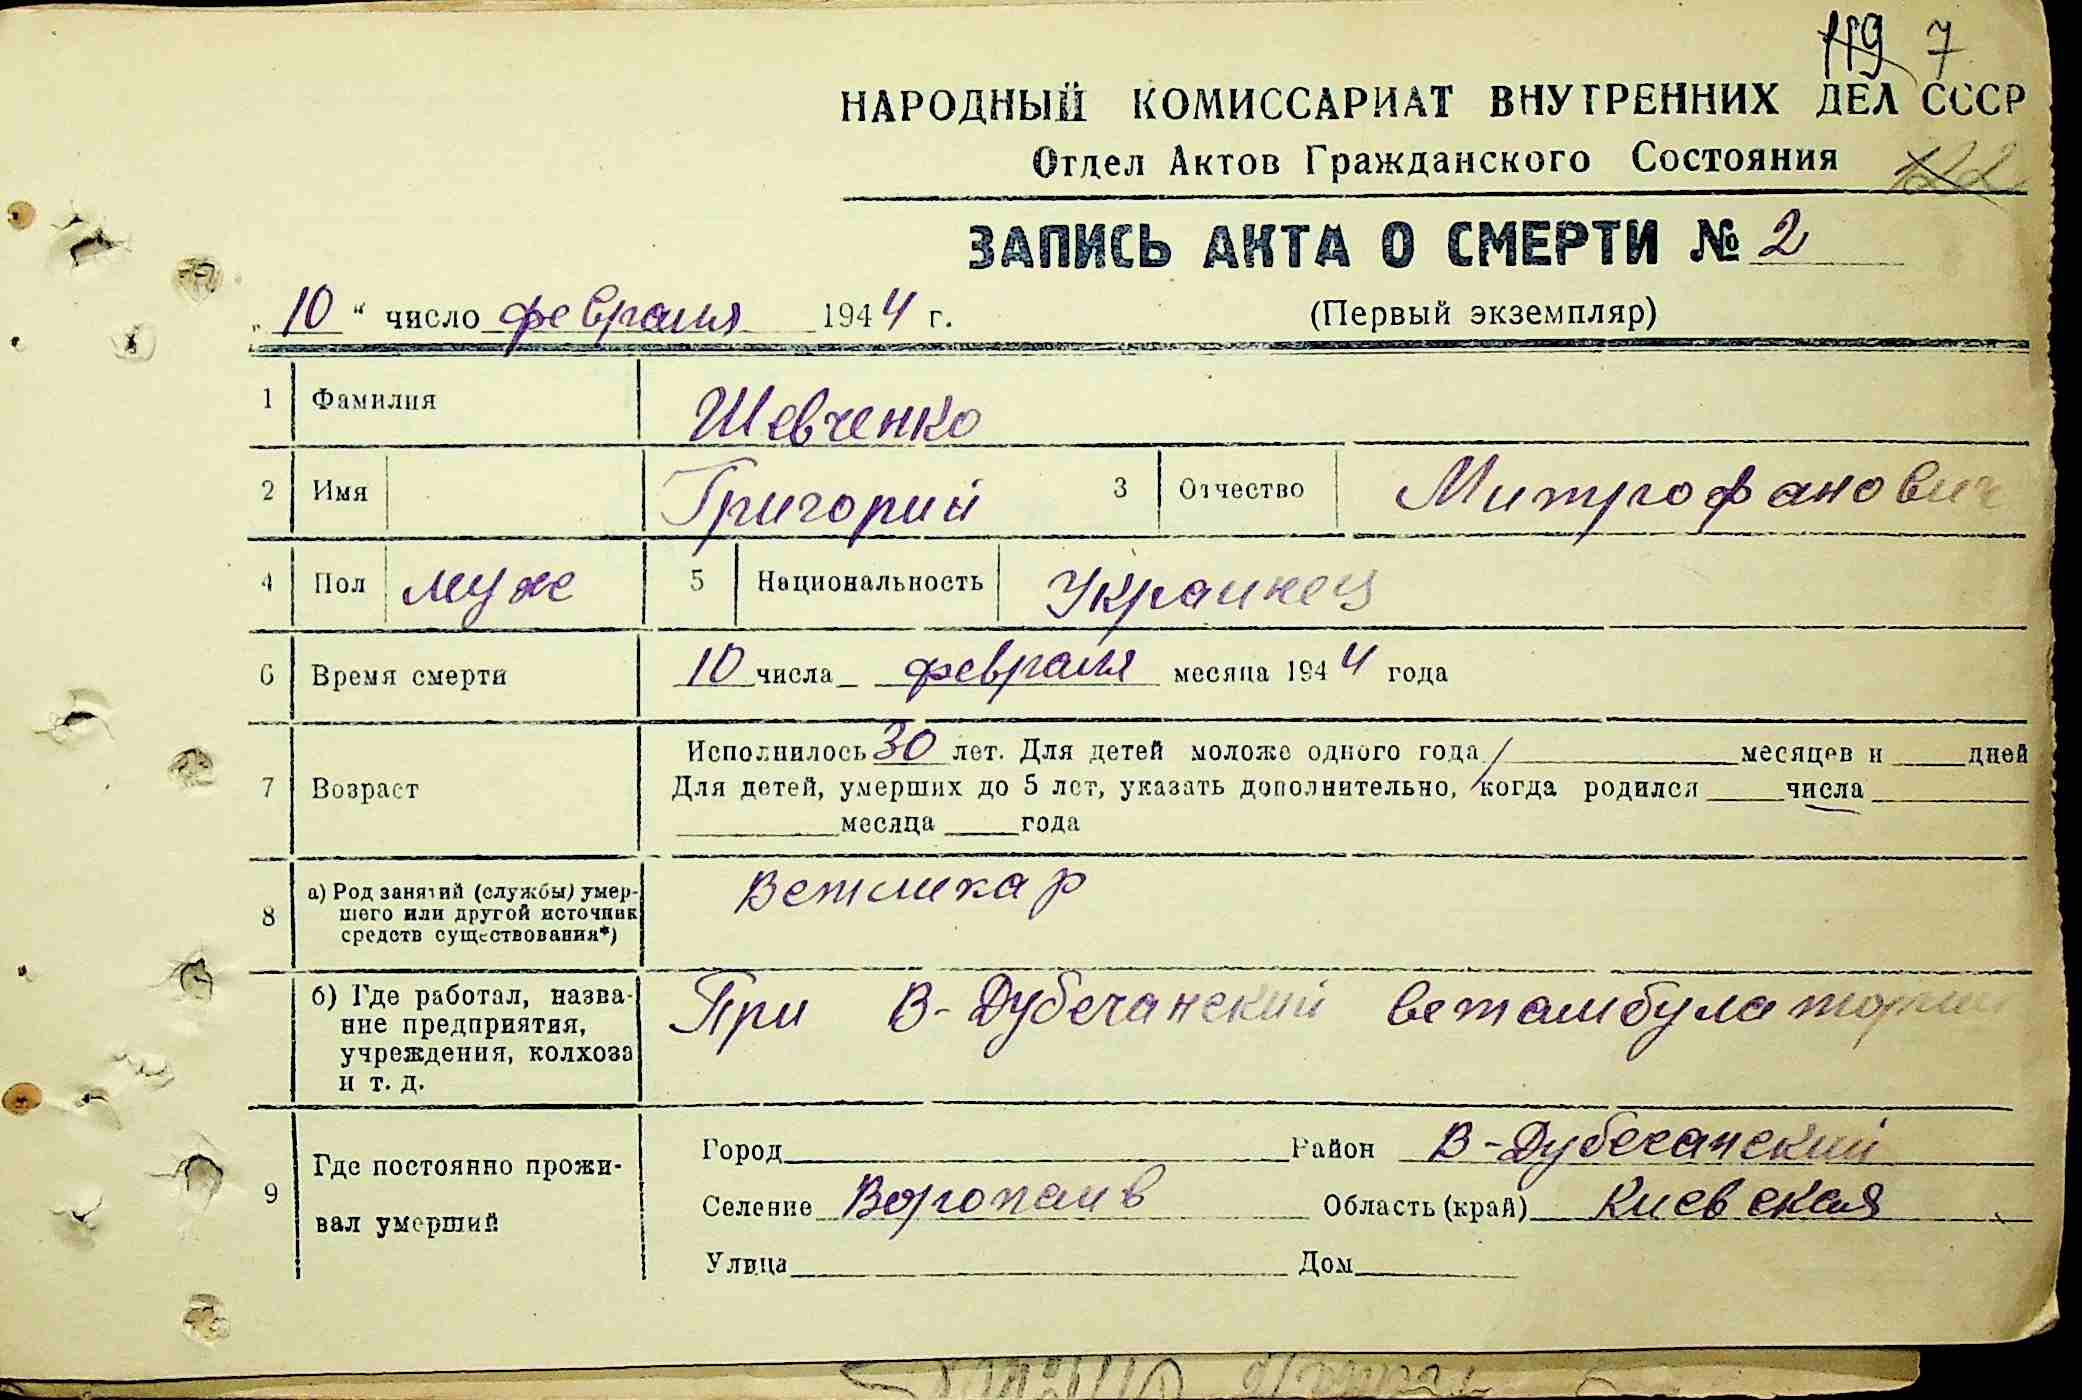 119 7
НАРОДНЫЙ КОМИССАРИАТ ВНУТРЕННИХ ДЕЛ СССР
Отдел Актов Гражданского Состояния 122
ЗАПИСЬ АКТА О СМЕРТИ № 2
„ 10 “ число февраля 1944 г. (Первый экземпляр)
1 Фамилия Шевченко
2 Имя Григорий 3 Отчество Митрофанович
4 Пол муж 5 Национальность Украинец
6 Время смерти 10 числа февраля месяца 1944 года
7 Возраст Исполнилось 30 лет. Для детей моложе одного года месяцев и дней
Для детей, умерших до 5 лет, указать дополнительно, когда родился числа
месяца года
8 а) Род занятий (службы) умер-
шего или другой источник
средств существования*)
Ветликар
б) Где работал, назва-
ние предприятия,
учреждения, колхоза
и т. д.
При В-Дубечанский ветамбулатории
9 Где постоянно прожи-
вал умерший
Город Район В-Дубечанский
Селение Воропаив Область (край) Киевская
Улица Дом